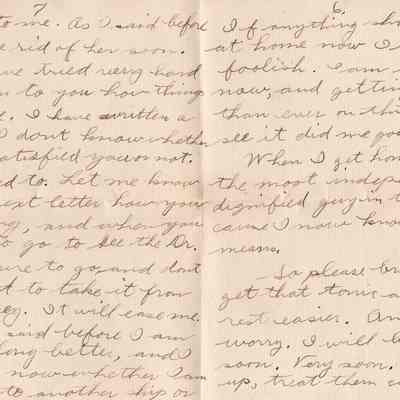 7.
to me. As I said before
e rid of her soon.
ve tried very hard
n to you how things
t. I have written a
I dont know whether
atisfied you or not.
ed to. Let me know
ext letter how your
g, and when you
to go to see the Dr.
ure to go, and dont
t to take it from
ey. It will ease me.
said before I am
long better, and I
now whether I am
to another hip or
6.
If anything sho
at home now I
foolish. I am
now, and gettin
than ever on thi
see it did me goo
When I get hom
the most indepe
dignified guy in t
cause I now know
means.
So please br
get that tonic a
rest easier. An
worry. I will b
soon. Very soon.
up, treat them a